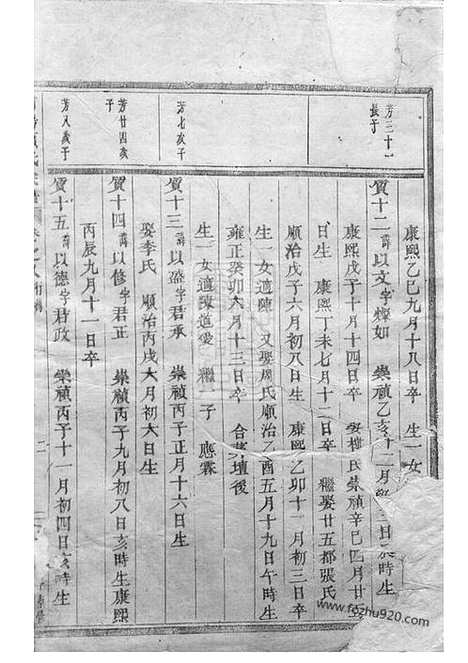 康熙乙巳九月十八日卒 生一女
芳三十一
長子
質十二諱以文字燦如 崇禎乙亥十二月 日 時生
康熙戊子十月十四日卒 娶 氏崇禎辛巳四月廿
日生 康熙丁未七月十二日卒 繼娶廿五都張氏
順治戊子六月初八日生 康熙乙卯十一月初三日卒
生一女適陳 又娶周氏順治乙酉五月十九日午時生
雍正癸卯六月十三日卒 合葬壇後
生一女適陳道愛 繼一子 應霖
芳七次子
質十三諱以盈字君承 崇禎丙子正月十六日生
娶李氏 順治丙戌六月初六日生
芳廿四次
子
質十四諱以修字君正 崇禎丙子九月初八日亥時生康熙
丙辰九月十一日卒
芳八次子
質十五諱以德字君政 崇禎丙子十一月初四日亥時生
二
www.fozhu920.com